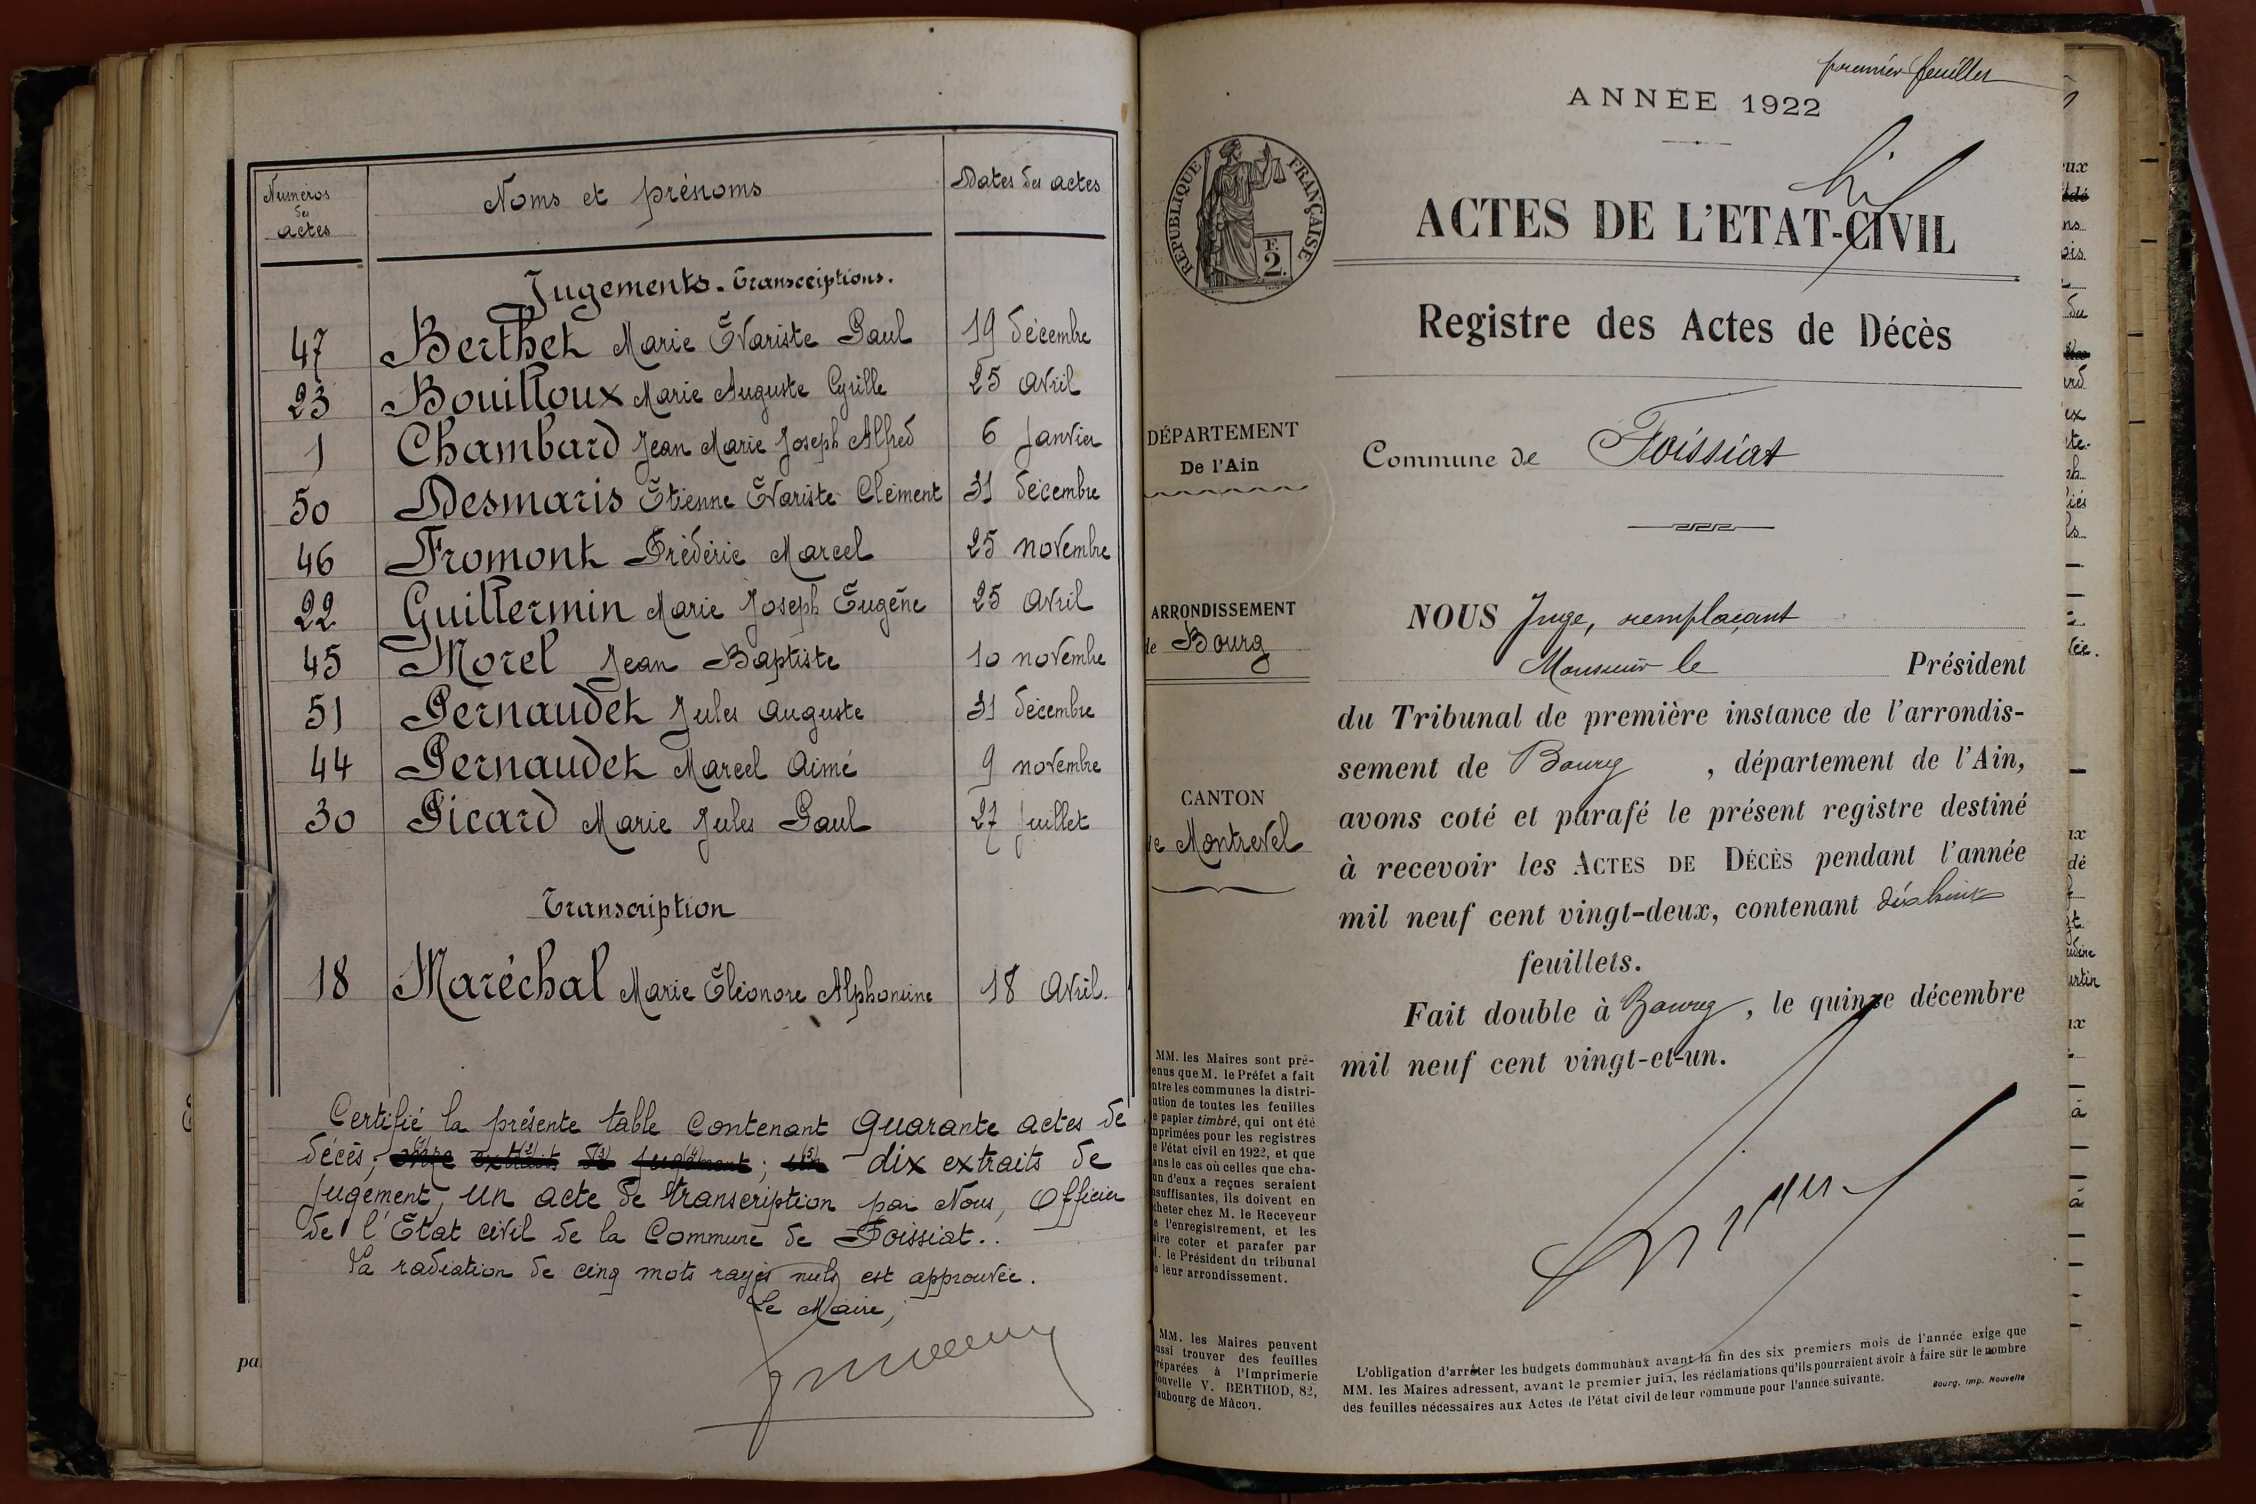 Numéros des actes
Noms et prénoms
Dates des actes
Jugements. Transcriptions.
47 Berthet Marie Évariste Paul 19 décembre
23 Bouilloux Marie Auguste Cyrille 25 avril
1 Chambard Jean Marie Joseph Alfred 6 Janvier
50 Desmaris Étienne Évariste Clément 31 décembre
46 Fromont Frédéric Marcel 25 novembre
22 Guillermin Marie Joseph Eugène 25 avril
45 Morel Jean Baptiste 10 novembre
51 Pernaudet Jules Auguste 31 décembre
44 Pernaudet Marcel Aimé 9 novembre
30 Picard Marie Jules Paul 27 Juillet
Transcription
18 Maréchal Marie Éléonore Alphonsine 18 Avril.
Certifié la présente table contenant quarante actes de
décès, onze extraits de jugement; un dix extraits de
jugement, un acte de transcription par Nous, Officier
de l'État civil de la Commune de Foissiat..
La radiation de cinq mots rayés nuls est approuvée.
Le Maire,
pa
premier feuillet
ANNÉE 1922
RÉPUBLIQUE FRANÇAISE
F.
2.
ACTES DE L'ETAT-CIVIL
Registre des Actes de Décès
Commune de Foissiat
DÉPARTEMENT
De l'Ain
ARRONDISSEMENT
de Bourg
CANTON
de Montrevel
NOUS Juge, remplaçant
Monsieur le Président
du Tribunal de première instance de l'arrondis-
sement de Bourg, département de l'Ain,
avons coté et parafé le présent registre destiné
à recevoir les ACTES DE DÉCÈS pendant l'année
mil neuf cent vingt-deux, contenant dix huit
feuillets.
Fait double à Bourg, le quinze décembre
mil neuf cent vingt-et-un.
MM. les Maires sont pré-
enus que M. le Préfet a fait
ntre les communes la distri-
ution de toutes les feuilles
e papier timbré, qui ont été
mprimées pour les registres
e l'état civil en 1922, et que
ans le cas où celles que cha-
un d'eux a reçues seraient
nsuffisantes, ils doivent en
cheter chez M. le Receveur
e l'enregistrement, et les
aire coter et parafer par
M. le Président du tribunal
e leur arrondissement.
MM. les Maires peuvent
ussi trouver des feuilles
réparées à l'Imprimerie
ouvelle V. BERTHOD, 82,
aubourg de Mâcon.
L'obligation d'arrêter les budgets communaux avant la fin des six premiers mois de l'année exige que
MM. les Maires adressent, avant le premier juin, les réclamations qu'ils pourraient avoir à faire sur le nombre
des feuilles nécessaires aux Actes de l'état civil de leur commune pour l'année suivante.
Bourg, Imp. Nouvelle